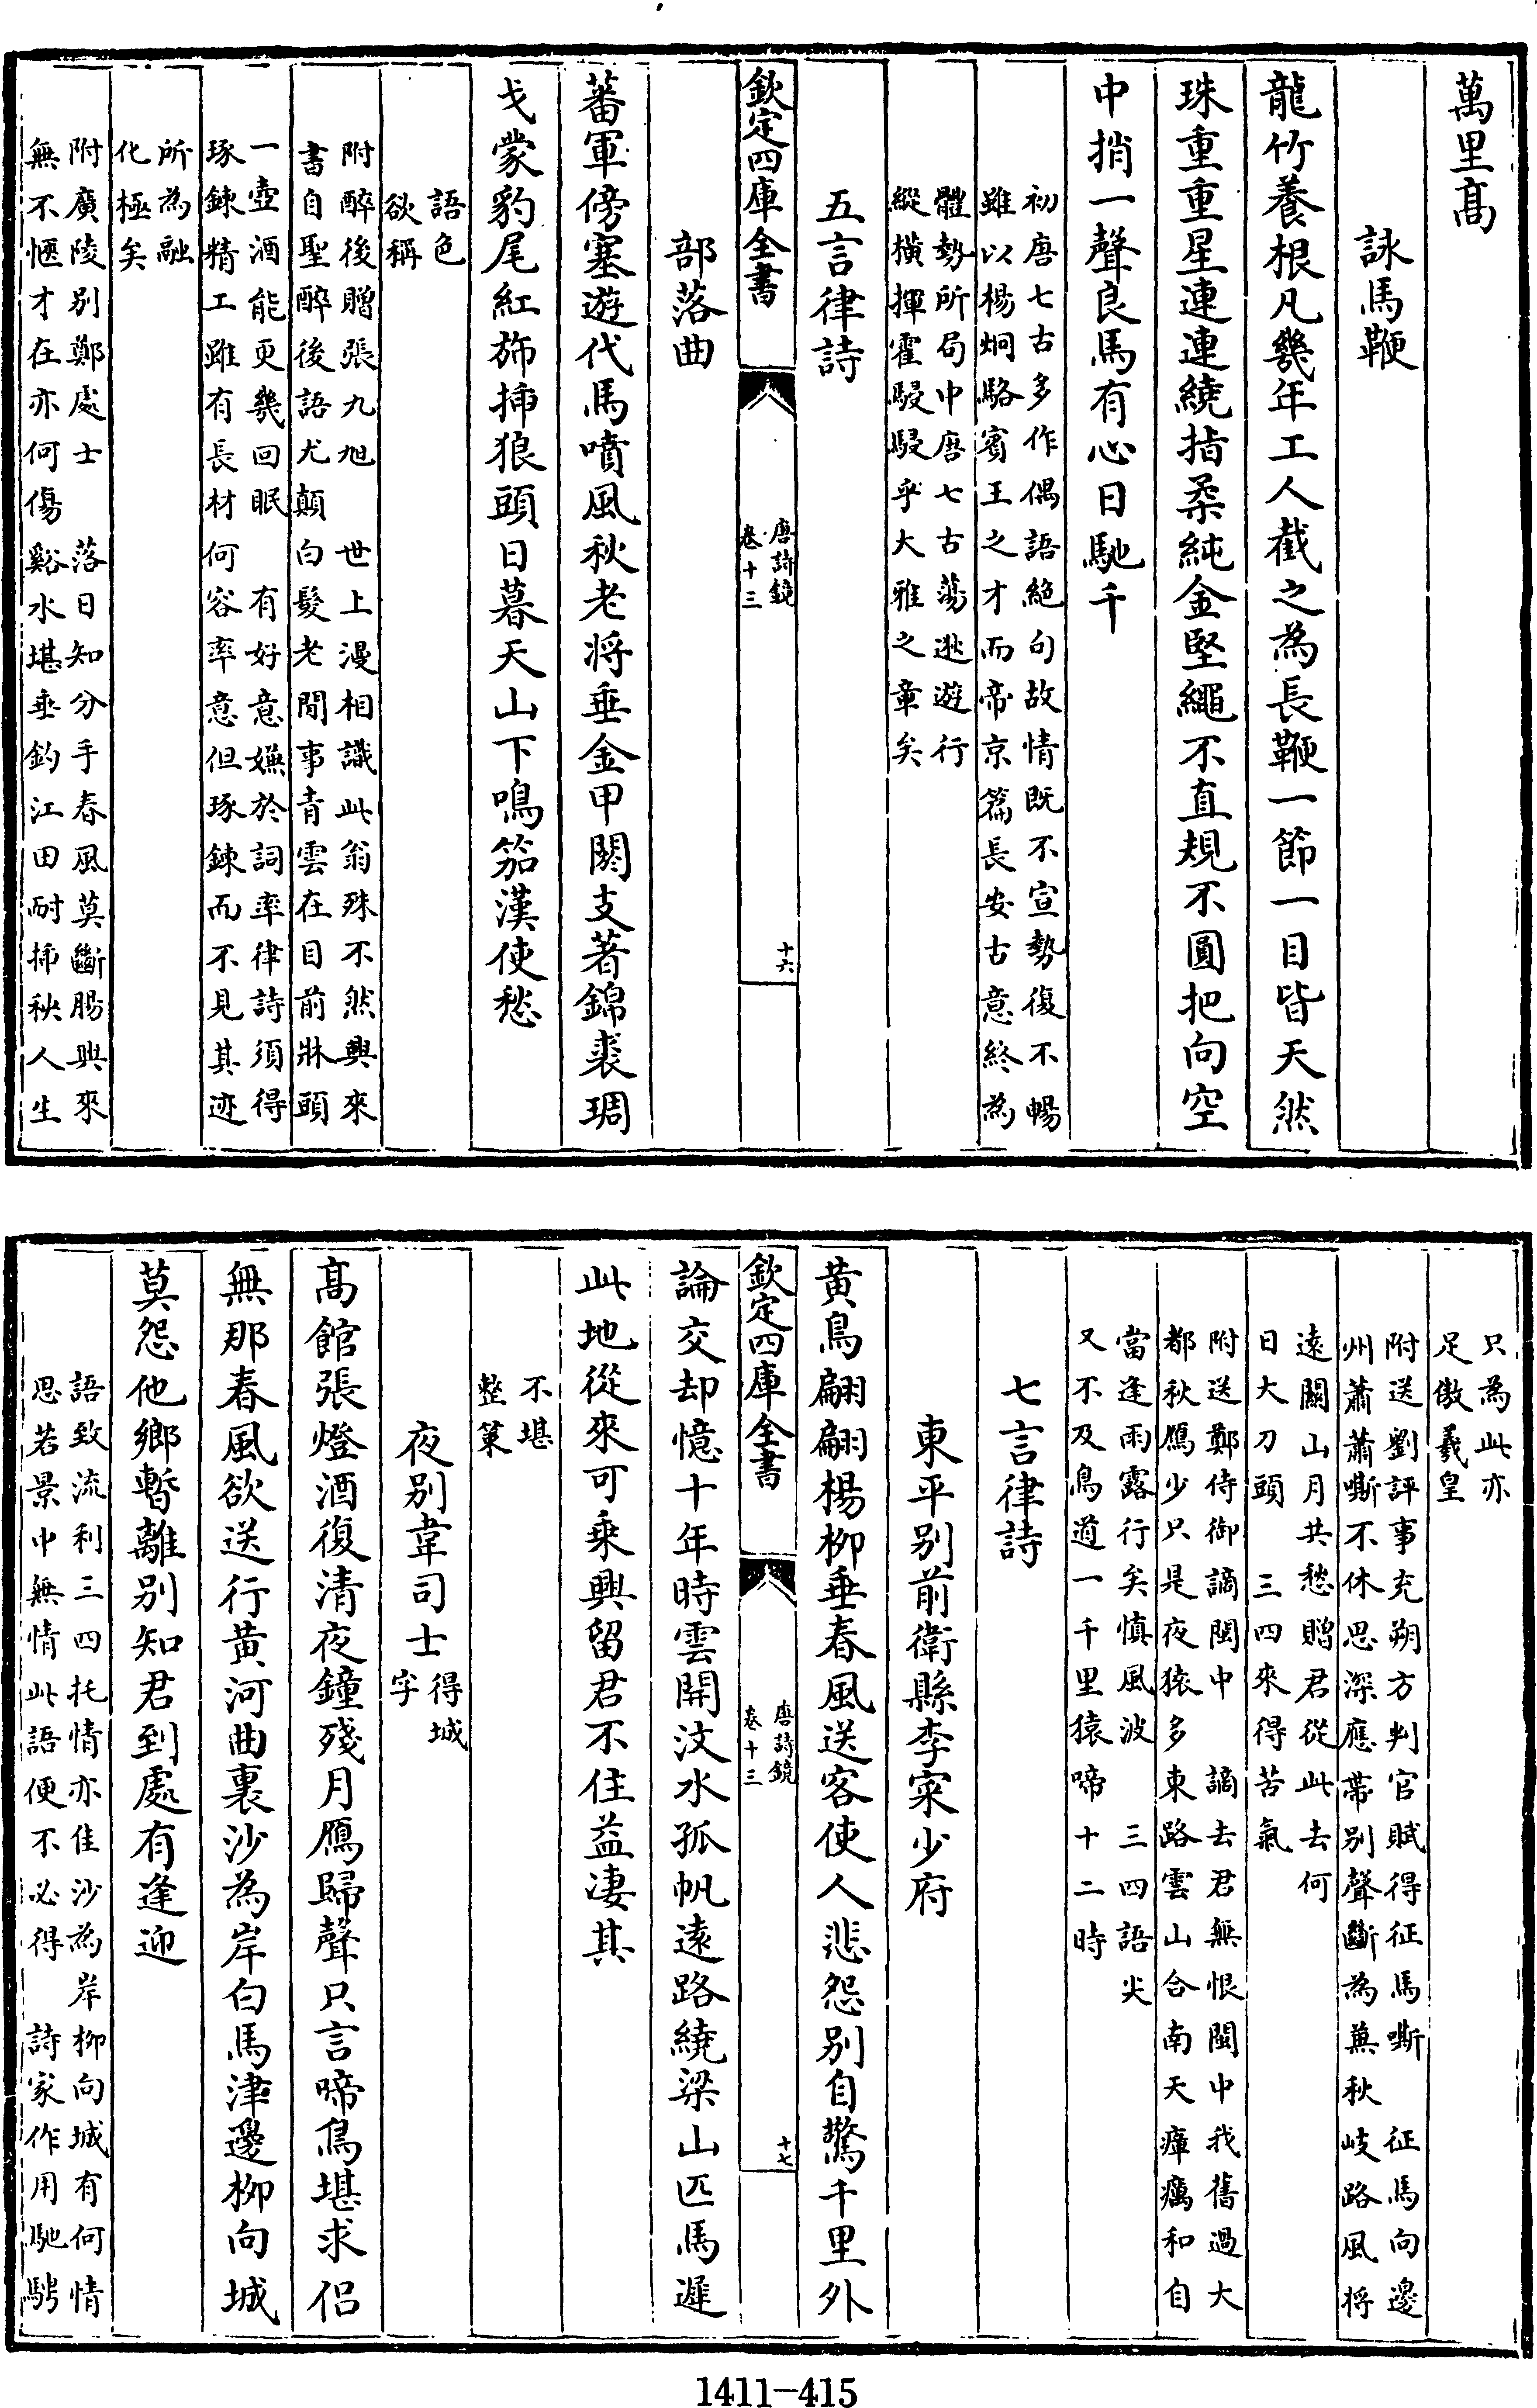 萬里髙
詠馬鞭
龍竹養根凡幾年工人截之為長鞭一節一目皆天然
珠重重星連連繞指柔純金堅繩不直規不圓把向空
中捎一聲良馬有心日馳千
初唐七古多作偶語絶句故情既不宣勢復不暢
雖以楊炯駱賓王之才而帝京篇長安古意終為
體勢所局中唐七古蕩逖遊行
縱横揮霍駸駸乎大雅之章矣
五言律詩
欽定四庫全書
唐詩鏡
卷十三
十六
部落曲
蕃軍傍塞遊代馬噴風秋老将垂金甲閼支著錦裘琱
戈蒙豹尾紅斾揷狼頭日暮天山下鳴笳漢使愁
語色
欲稱
附醉後贈張九旭 世上漫相識此翁殊不然興來
書自聖醉後語尤顛白髮老閒事青雲在目前牀頭
一壺酒能更幾回眠 有好意嫌於詞率律詩須得
琢鍊精工雖有長材何容率意但琢鍊而不見其迹
所為融
化極矣
附廣陵别鄭處士 落日知分手春風莫斷腸興來
無不愜才在亦何傷谿水堪垂釣江田耐揷秧人生
只為此亦
足傲羲皇
附送劉評事充朔方判官賦得征馬嘶 征馬向邊
州蕭蕭嘶不休思深應帶别聲斷為兼秋岐路風将
遠關山月共愁贈君從此去何
日大刀頭 三四來得苦氣
附送鄭侍御謫閩中 謫去君無恨閩中我舊過大
都秋鴈少只是夜猿多東路雲山合南天瘴癘和自
當逢雨露行矣慎風波 三四語尖
又不及鳥道一千里猿啼十二時
七言律詩
東平别前衛縣李寀少府
黄鳥翩翩楊栁垂春風送客使人悲怨别自驚千里外
欽定四庫全書
唐詩鏡
卷十三
十七
論交却憶十年時雲開汶水孤帆遠路繞梁山匹馬遲
此地從來可乗興留君不住益凄其
不堪
整策
夜别韋司士得城
字
髙館張燈酒復清夜鐘殘月鴈歸聲只言啼鳥堪求侣
無那春風欲送行黄河曲裏沙為岸白馬津邊栁向城
莫怨他鄉暫離别知君到處有逢迎
語致流利三四托情亦佳沙為岸栁向城有何情
思若景中無情此語便不必得 詩家作用馳騁
1411—415